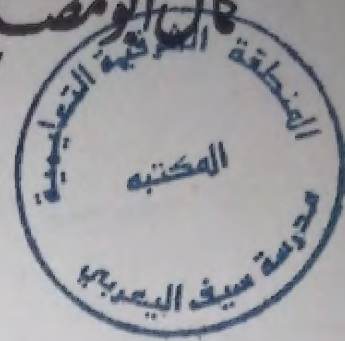 المنطقة الشرقية التعليمية
المكتبه
مدرسة سيف اليعربي